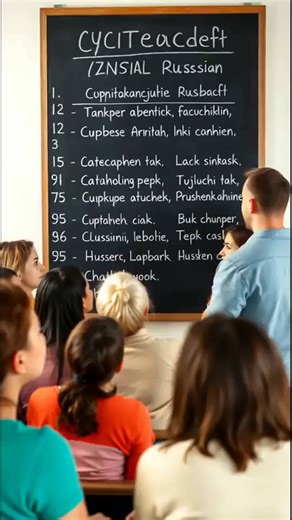 CYCITeacdeft
IZNSIAL Russsian
1. Cupnitakancjutie Rusbacft
12 - Tankper abentick, facuchiklin,
12 - Cupbese Arritah, Inki canhien,
3
15 - Catecaphen tak, Lack sinkask,
91 - Cataholing pepk, Tujluchi tak,
75 - Cuipkupe atuchek, Prushenkahine
95 - Cuptaheh ciak. Buk chunper,
96 - Clussinii, lebotie, Tepk cask
95 - Husserc, Lapbark Hussken